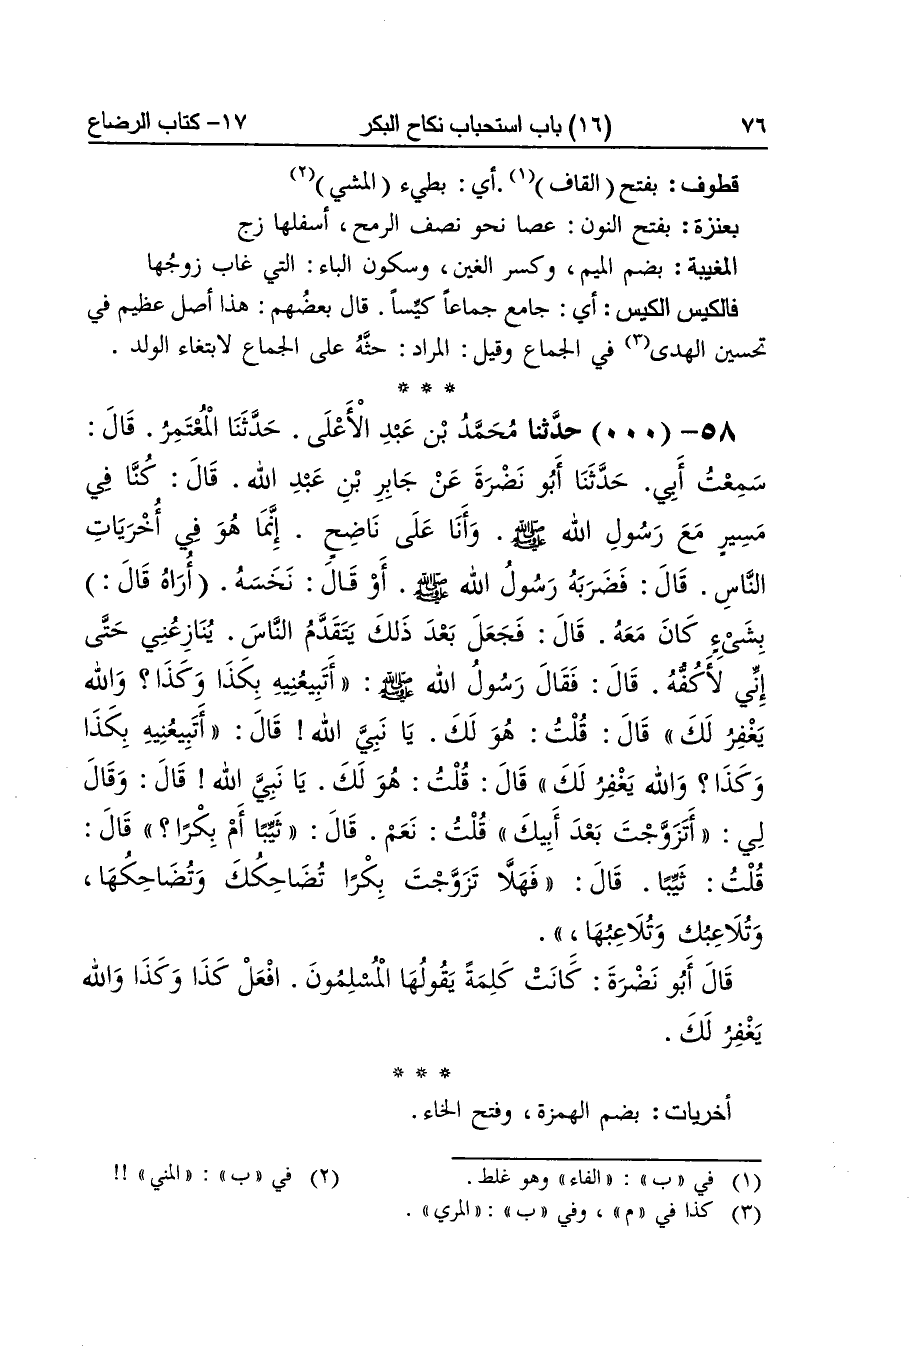 ٧٦ (١٦) باب استحباب نكاح البكر ١٧- كتاب الرضاع
قطوف : بفتح ( القاف )(١) .أي : بطيء ( المشي )(٢)
بعنزة : بفتح النون : عصا نحو نصف الرمح ، أسفلها زج
المغيبة : بضم الميم ، وكسر الغين ، وسكون الباء : التي غاب زوجُها
فالكيس الكيس : أي : جامع جماعاً كيِّساً . قال بعضُهم : هذا أصل عظيم في
تحسين الهدى(٣) في الجماع وقيل : المراد : حثَّهُ على الجماع لابتغاء الولد .
* * *
٥٨- (٠٠٠) حدَّثنا مُحَمَّدُ بْن عَبْدِ الْأَعْلَى . حَدَّثَنَا الْمُعْتَمِرُ . قَالَ :
سَمِعْتُ أَبِي. حَدَّثَنَا أَبُو نَضْرَةَ عَنْ جَابِرِ بْنِ عَبْدِ الله . قَالَ : كُنَّا فِي
مَسِيرٍ مَعَ رَسُولِ الله ﷺ . وَأَنَا عَلَى نَاضِحٍ . إِنَّمَا هُوَ فِي أُخْرَيَاتِ
النَّاسِ . قَالَ : فَضَرَبَهُ رَسُولُ الله ﷺ . أَوْ قَالَ : نَخَسَهُ . ( أُرَاهُ قَالَ : )
بِشَىْءٍ كَانَ مَعَهُ . قَالَ : فَجَعَلَ بَعْدَ ذَلكَ يَتَقَدَّمُ النَّاسَ . يُنَازِعُنِي حَتَّى
إِنِّي لَأَكُفُّهُ . قَالَ : فَقَالَ رَسُولُ الله ﷺ : « أَتَبِيعُنِيهِ بِكَذَا وَكَذَا ؟ وَالله
يَغْفِرُ لَكَ » قَالَ : قُلْتُ : هُوَ لَكَ . يَا نَبِيَّ الله ! قَالَ : « أَتَبِيعُنِيهِ بِكَذَا
وَكَذَا ؟ وَالله يَغْفِرُ لَكَ » قَالَ : قُلْتُ : هُوَ لَكَ . يَا نَبِيَّ الله ! قَالَ : وَقَالَ
لِي : « أَتَزَوَّجْتَ بَعْدَ أَبِيكَ » قُلْتُ : نَعَمْ . قَالَ : « ثَيِّبًا أَمْ بِكْرًا ؟ » قَالَ :
قُلْتُ : ثَيِّبًا . قَالَ : « فَهَلَّا تَزَوَّجْتَ بِكْرًا تُضَاحِكُكَ وَتُضَاحِكُهَا ،
وَتُلَاعِبُك وَتُلَاعِبُهَا ، » .
قَالَ أَبُو نَضْرَةَ : كَانَتْ كَلِمَةً يَقُولُهَا الْمُسْلِمُونَ . افْعَلْ كَذَا وَكَذَا وَالله
يَغْفِرُ لَكَ .
* * *
أخريات : بضم الهمزة ، وفتح الخاء .
(١) في « ب » : « الفاء » وهو غلط . (٢) في « ب » : « المني » !!
(٣) كذا في « م » ، وفي « ب » : « المري » .